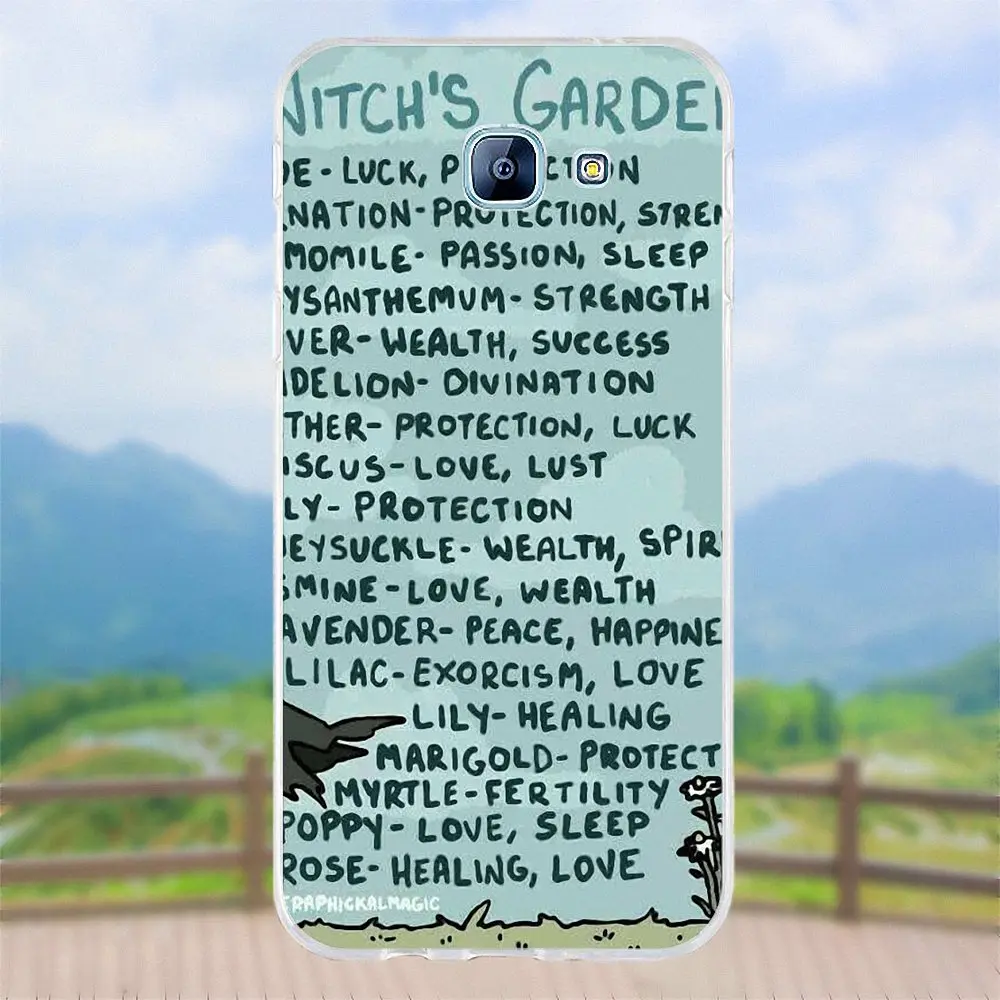 WITCH'S GARDEN
DE - LUCK, P CTION
NATION - PROTECTION, STREN
MOMILE - PASSION, SLEEP
YSANTHEMUM - STRENGTH
VER - WEALTH, SUCCESS
DELION - DIVINATION
THER - PROTECTION, LUCK
ISCUS - LOVE, LUST
LY - PROTECTION
EYSUCKLE - WEALTH, SPIR
SMINE - LOVE, WEALTH
AVENDER - PEACE, HAPPINE
LILAC - EXORCISM, LOVE
LILY - HEALING
MARIGOLD - PROTECT
MYRTLE - FERTILITY
POPPY - LOVE, SLEEP
ROSE - HEALING, LOVE
ERAPHICKALMAGIC